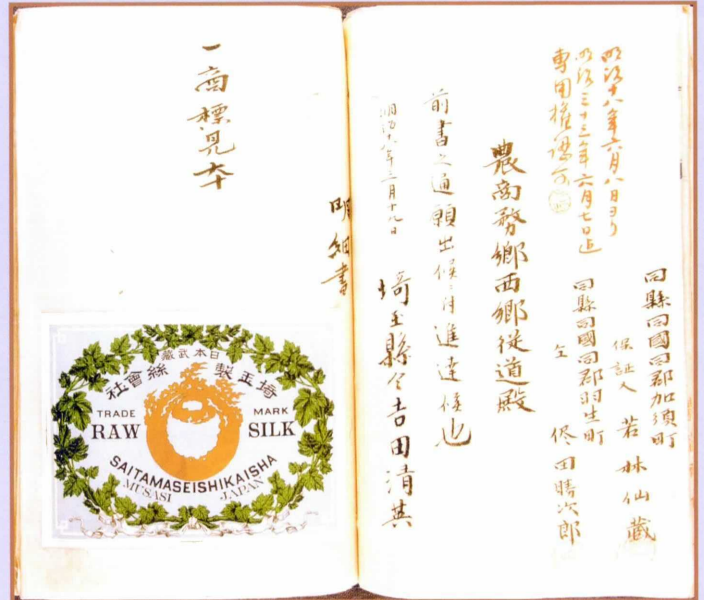 同縣同國同郡加須町
保証人 若林仙蔵
同縣同國同郡羽生町
仝
田晴次郎
明治十八年六月八日ヨリ
明治三十三年六月七日迄
専用権
農商務卿西郷従道殿
前書之通願出候ニ付進達候也
明治十八年三月十九日
埼玉縣令吉田清英
明細書
一商標見本
日本武蔵
埼玉製絲會社
TRADE MARK
RAW SILK
SAITAMASEISHIKAISHA
MUSASI JAPAN